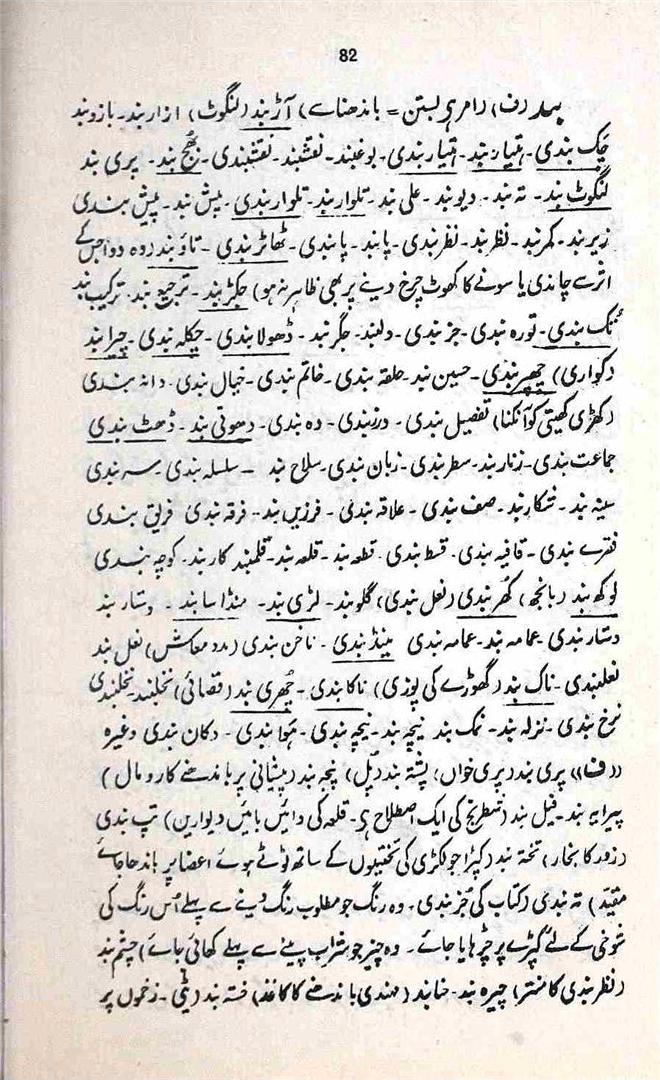 82
بند (ف) (امر ہے بستن = باندھنا سے) آڑبند (لنگوٹ) ازاربند۔ بازوبند
چک بندی۔ ہتیاربند۔ ہتیاربندی۔ بوغبند۔ نقشبند۔ نقشبندی۔ بھج بند۔ پری بند
لنگوٹ بند۔ تہ بند۔ دیوبند۔ علی بند۔ تلواربند۔ تلواربندی۔ پیش بند۔ پیش بندی
زیربند۔ کمربند۔ نظربند۔ نظربندی۔ پابند۔ پابندی۔ ٹھاٹربندی۔ تاؤبند (وہ دوا جس کے
اثر سے چاندی یا سونے کا کھوٹ چرخ دینے پر بھی ظاہر نہ ہو) جکڑبند۔ ترجیع بند۔ ترکیب بند
تک بندی۔ تورہ بندی۔ جزبندی۔ دلبند۔ جگربند۔ ڈھولا بندی۔ چکلہ بندی۔ چیرا بند
(کواری) چھپربندی۔ حسین بند۔ حلقہ بندی۔ خاتم بندی۔ خیال بندی۔ دانہ بندی
(کھڑی کھیتی کو آنکنا) تفصیل بندی۔ درزبندی۔ دہ بندی۔ دھوتی بند۔ ڈھٹ بندی
جماعت بندی۔ زناربند۔ سطربندی۔ زبان بندی۔ سلاح بند ۔ سلسلہ بندی۔ سہ بندی
سینہ بند۔ شکاربند۔ صف بندی۔ علاقہ بندی۔ فرزیں بند۔ فرقہ بندی فریق بندی
فقرے بندی۔ قافیہ بندی۔ قسط بندی۔ قطعہ بند۔ قلعہ بند۔ قلمبند کاربند۔ کوچہ بندی
کوکھ بند (بانجھ) کھربندی (نعل بندی) گلوبند۔ لڑی بند۔ منڈاسا بند۔ دستاربند
دستاربندی۔ عمامہ بند۔ عمامہ بندی مینڈبندی۔ ناخن بندی (مدد معاش) نعل بند
نعلبندی۔ ناک بند (گھوڑے کی پوزی) ناکا بندی۔ چھری بند (قصائی) نخلبند۔ نخلبندی
نرخ بندی۔ نزلہ بند۔ نمک بند نیچہ بند۔ نیچہ بندی۔ ہوا بندی۔ دکان بندی وغیرہ
((ف)) پری بند (پری خواں) پشتہ بند (پل) پنجہ بند (پیشانی پر باندھنے کا رومال)
پیرایہ بند۔ فیل بند (شطرنج کی ایک اصطلاح ہے۔ قلعہ کی دائیں بائیں دیواریں) تپ بندی
(زور کا بخار) تختہ بند (کپڑا جو لکڑی کی تختیوں کے ساتھ ٹوٹے ہوئے اعضا پر باندھا جائے
مقید) تہ بندی (کتاب کی جزبندی۔ وہ رنگ جو مطلوب رنگ دینے سے پہلے اس رنگ کی
شوخی کے لئے کپڑے پر چڑھایا جائے۔ وہ چیز جو شراب پینے سے پہلے کھائی جائے) چشم بند
(نظربندی کا منتر) چیرہ بند۔ حنا بند (مہندی باندھنے کا کاغذ) خستہ بند (پٹی۔ زخموں پر